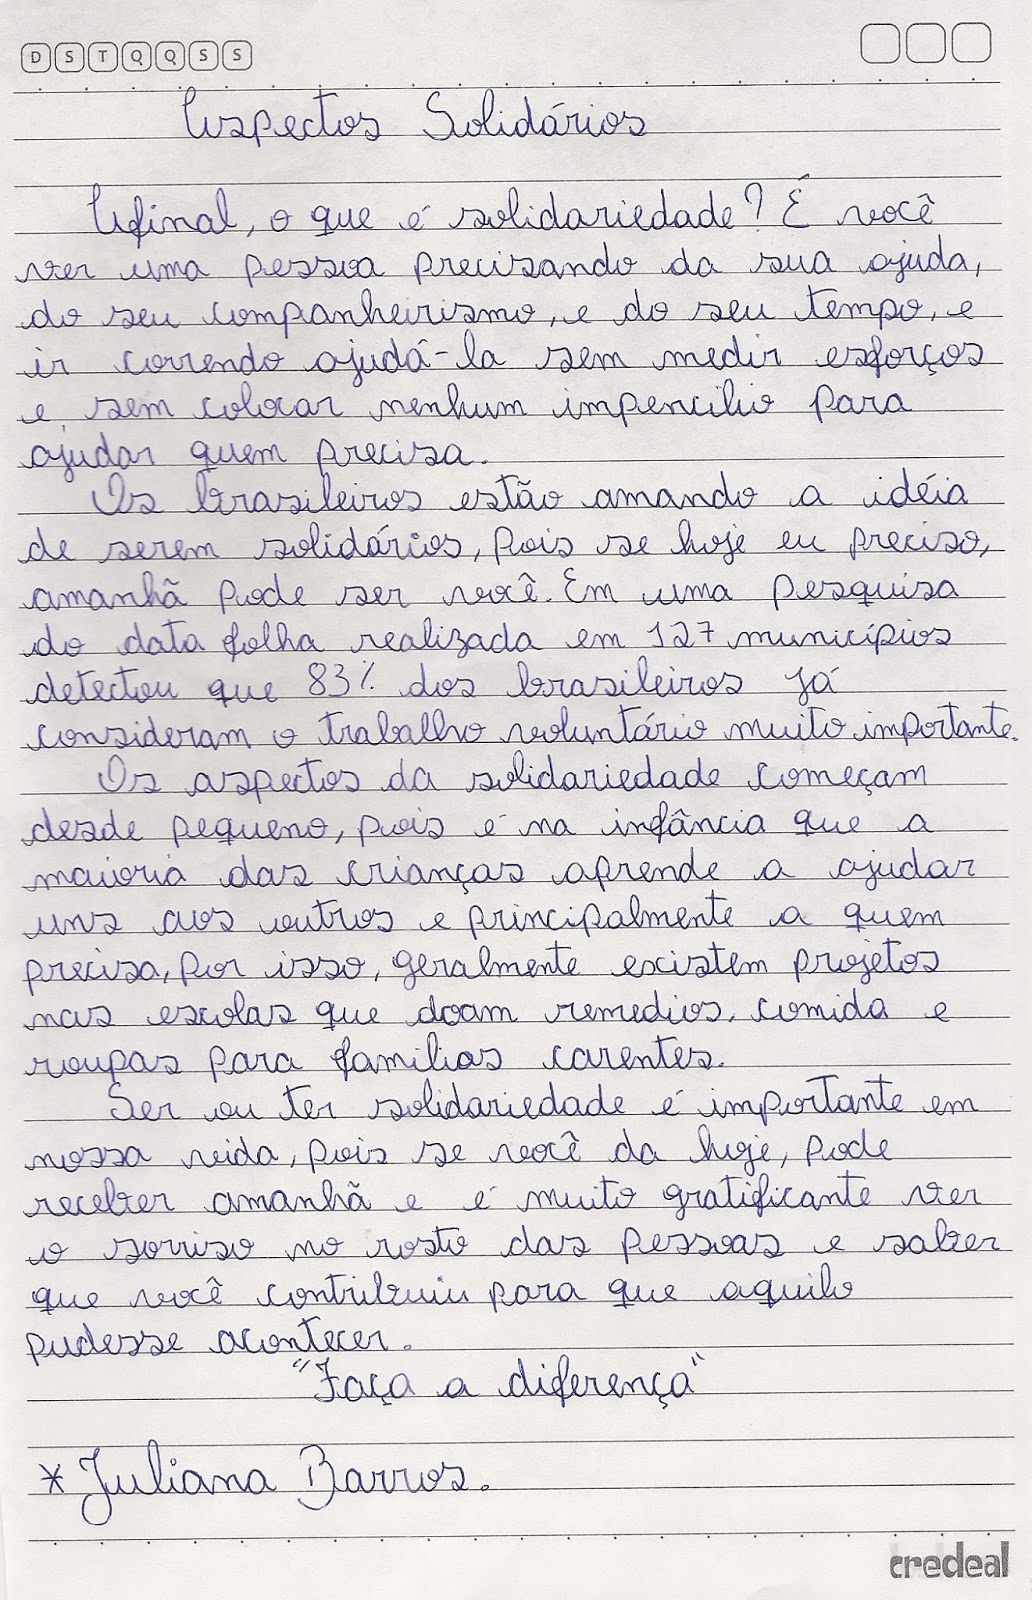 D S T Q Q S S
Aspectos Solidários
Afinal, o que é solidariedade? É você
ver uma pessoa precisando da sua ajuda,
do seu companheirismo, e do seu tempo, e
ir correndo ajudá-la sem medir esforços
e sem colocar nenhum impencilio para
ajudar quem precisa.
Os brasileiros estão amando a idéia
de serem solidários, pois se hoje eu preciso,
amanhã pode ser você. Em uma pesquisa
do data folha realizada em 127 municípios
detectou que 83% dos brasileiros já
consideram o trabalho voluntário muito importante.
Os aspectos da solidariedade começam
desde pequeno, pois é na infância que a
maioria das crianças aprende a ajudar
uns aos outros e principalmente a quem
precisa, por isso, geralmente existem projetos
nas escolas que doam remedios, comida e
roupas para familias carentes.
Ser ou ter solidariedade é importante em
nossa vida, pois se você da hoje, pode
receber amanhã e é muito gratificante ver
o sorriso no rosto das pessoas e saber
que você contribuiu para que aquilo
pudesse acontecer.
"Faça a diferença"
* Juliana Barros.
credeal